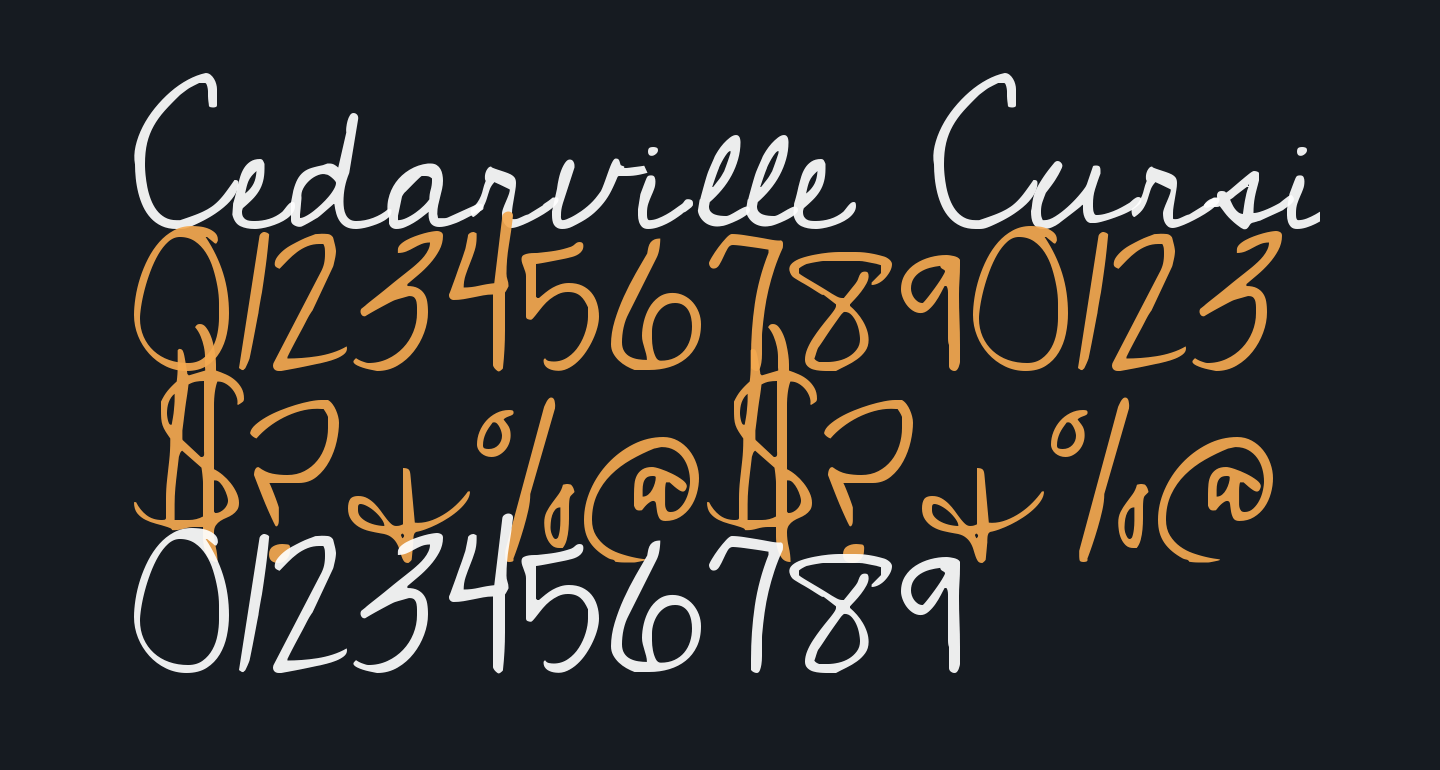 Cedarville Cursi
01234567890123
$?&%@$?&%@
0123456789